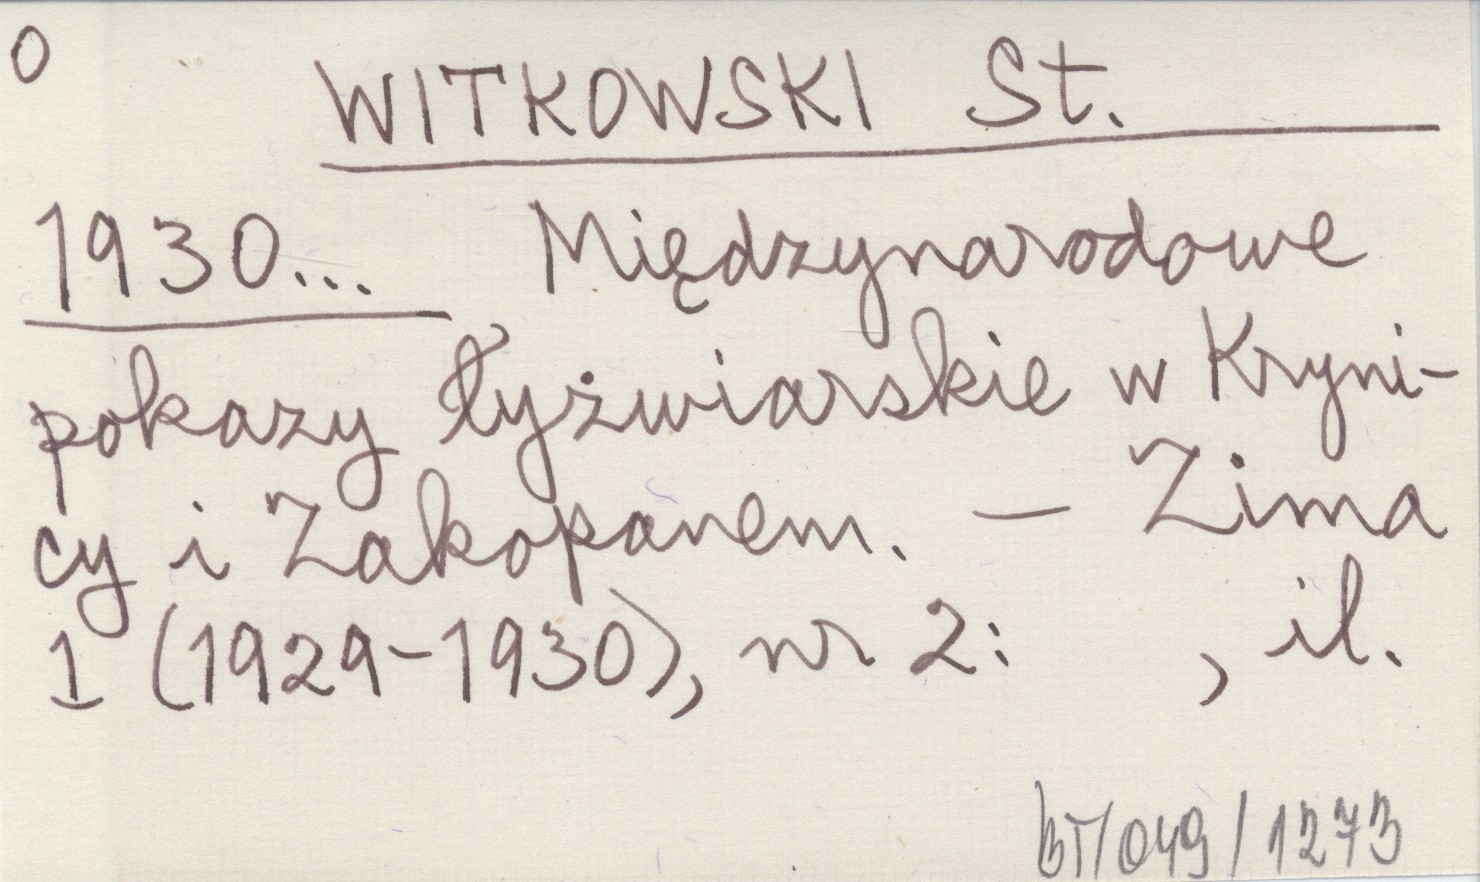 0
WITKOWSKI St.
1930... Międzynarodowe
pokazy łyżwiarskie w Kryni-
cy i Zakopanem. — Zima
1 (1929-1930), nr 2: , il.
BT/049/1273